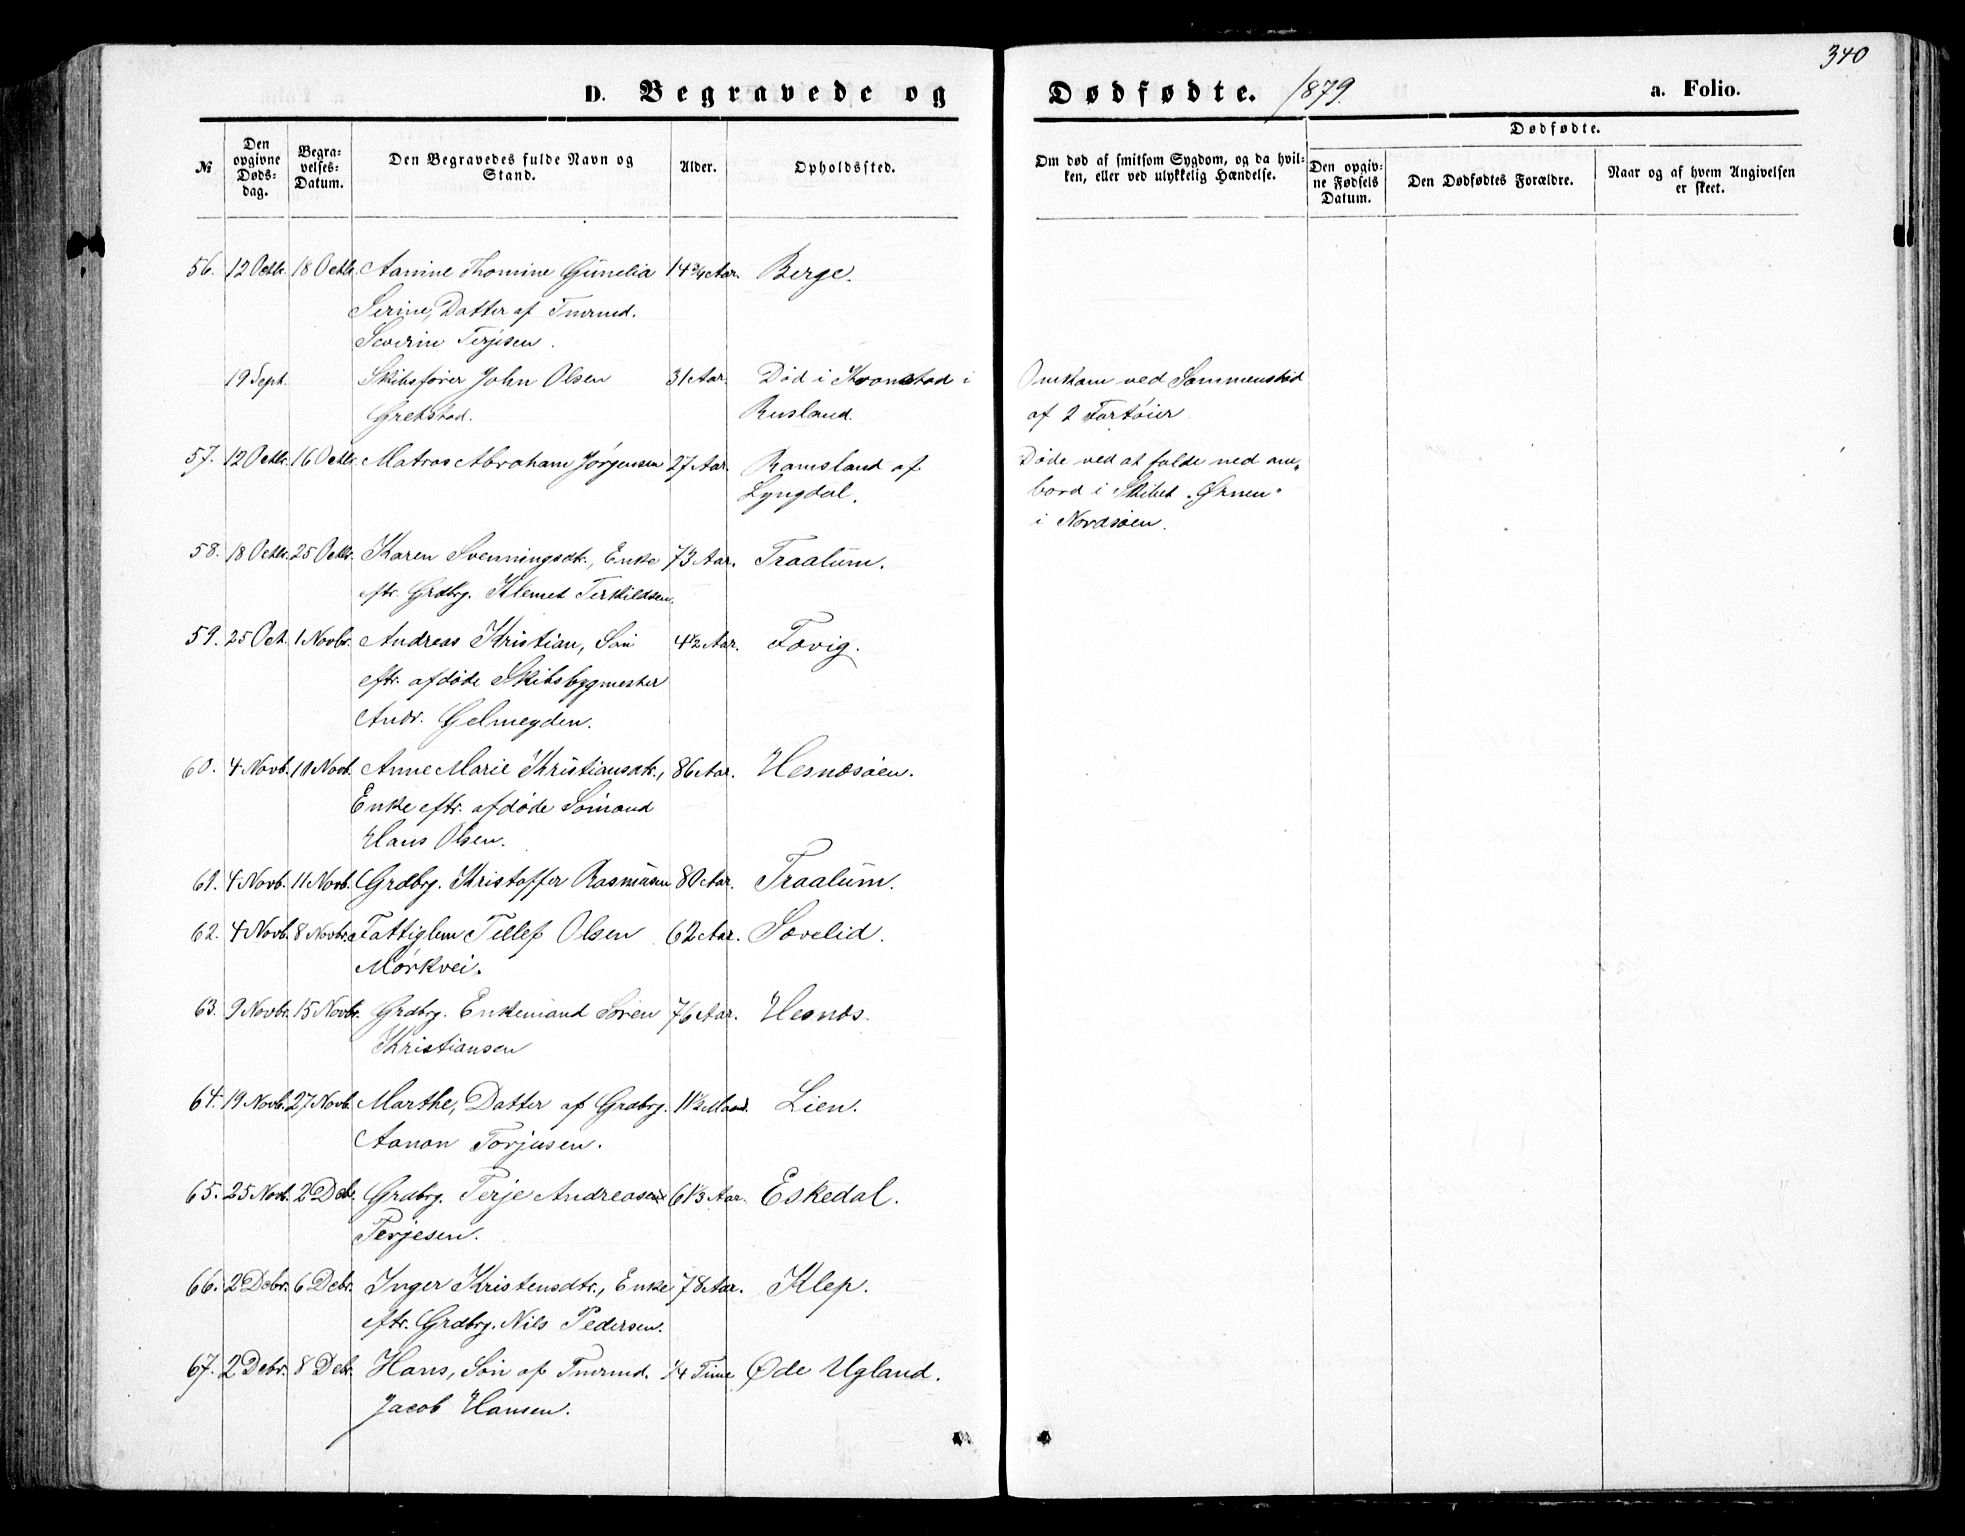 340
D. Begravede og Dødfødte. 1879. a. Folio.
Dødfødte.
№
Den opgivne Døds-dag.
Begra-velses-Datum.
Den Begravedes fulde Navn og Stand.
Alder.
Opholdssted.
Om død af smitsom Sygdom, og da hvil-ken, eller ved ulykkelig Hændelse.
Den opgiv-ne Fødsels Datum.
Den Dødfødtes Forældre.
Naar og af hvem Angivelsen er skeet.
56. 12 Octbr. 18 Octbr. Aanine Thomine Gunelia 14 3/4 Aar. Berge.
Serine, Datter af Tmrmd.
Severin Terjesen.
19 Sept. Skibsfører John Olsen 31 Aar. Død i Kronstad i Omkom ved Sammenstød
Grefstad. Rusland. af 2 Fartøier
57. 12 Octbr. 16 Octbr. Matros Abraham Jørgensen 27 Aar. Ramsland af Døde ved at falde ned om„
Lyngdal. bord i Skibet „Ørnen"
i Nordsøen.
58. 18 Octbr. 25 Octbr. Karen Svenningsdtr., Enke 73 Aar. Traalum.
eftr. Grdbrg. Klemet Terkildsen.
59. 25 Oct. 1 Novbr. Andreas Kristian, Søn 4 1/2 Aar. Fevig.
eftr. afdøde Skibsbygmester
Andr. Gelmeyden.
60. 4 Novb. 11 Novb. Anne Marie Kristiansdtr., 86 Aar. Hesnesøen.
Enke eftr. afdøde Sømand
Hans Olsen.
61. 4 Novb. 11 Novb. Grdbrg. Kristoffer Rasmusen 80 Aar. Traalum.
62. 4 Novb. 8 Novbr. Fattiglem Tellef Olsen 62 Aar. Sævelid.
Mørkvei.
63. 9 Novbr. 15 Novbr. Grdbrg. Enkemand Søren 76 Aar. Hesnes.
Kristiansen
64. 19 Novb. 27 Novb. Marthe, Datter af Grdbrg. 1 1/2 Maand. Lien.
Aanon Torjusen.
65. 25 Novb. 2 Debr. Grdbrg. Terje Andreas 61 1/3 Aar. Eskedal.
Terjesen.
66. 2 Debr. 6 Debr. Inger Kristensdtr., Enke 78 Aar. Klep.
eftr. Grdbrg. Nils Pedersen.
67. 2 Debr. 8 Debr. Hans, Søn af Tmrmd. 1/4 Time Øde Ugland.
Jacob Hansen.